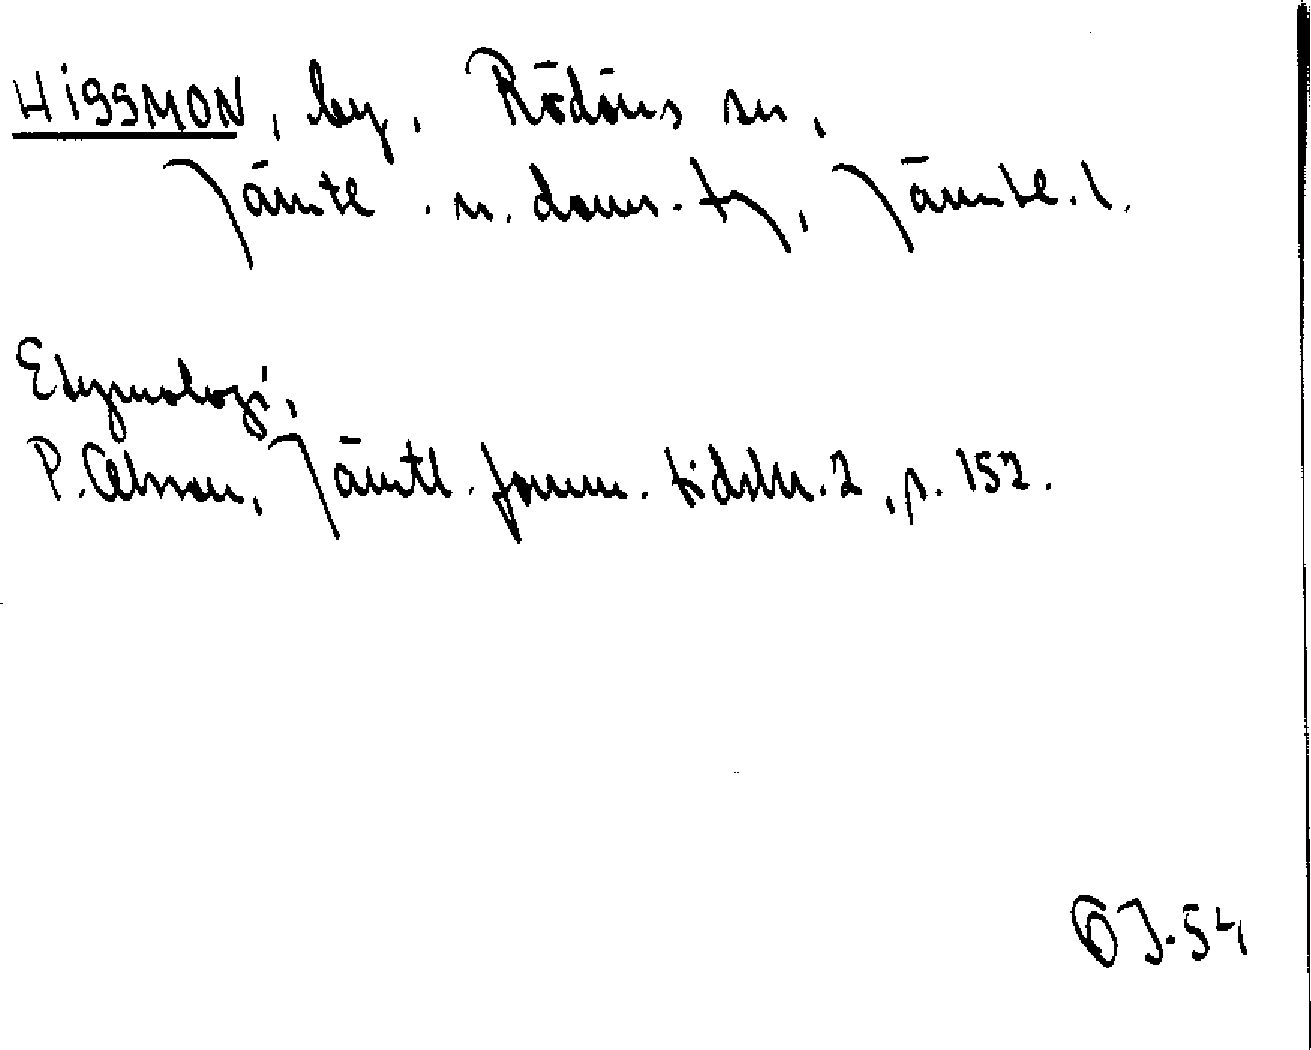 HISSMON, by, Rödöns sn,
Jämtl. n. doms. tg, Jämtl. l.
Etymologi,
P. Olsson, Jämtl. fornm. tidskr. 2, p. 152.
J-54